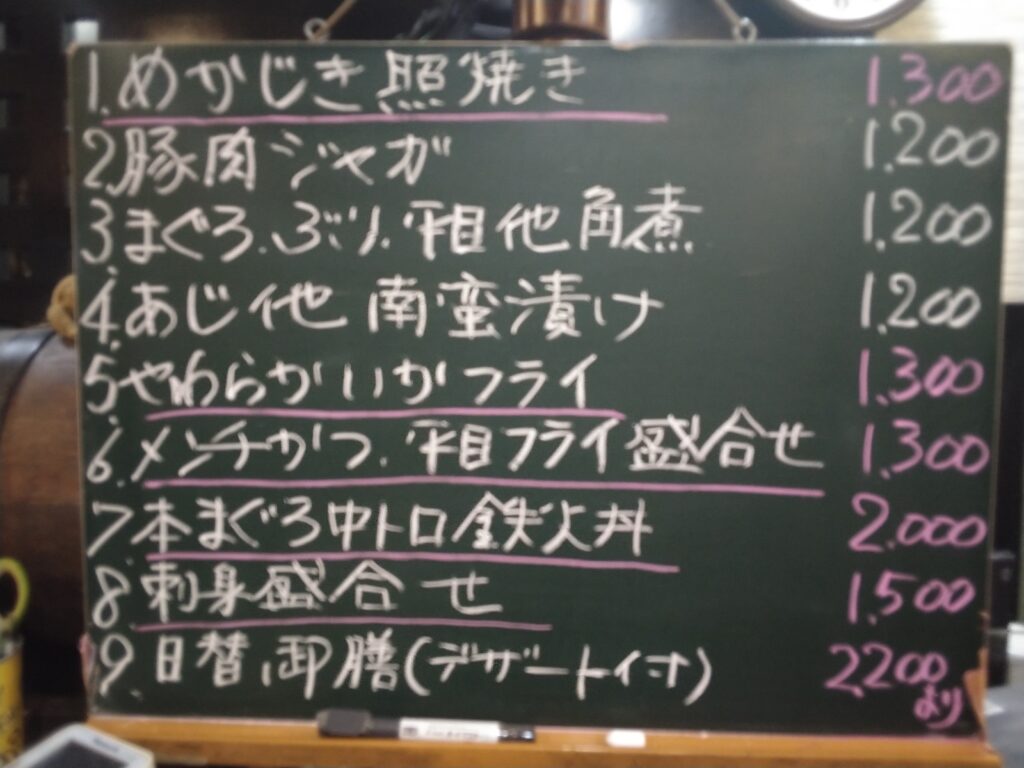 1. めかじき照焼き 1.300
2. 豚肉ジャガ 1.200
3 まぐろ.ぶり.平目他角煮 1.200
4. あじ他 南蛮漬け 1.200
5 やわらかいかフライ 1.300
6. メンチかつ.平目フライ盛合せ 1.300
7. 本まぐろ中トロ鉄火丼 2.000
8. 刺身盛合せ 1.500
9. 日替御膳(デザート付) 2.200
より